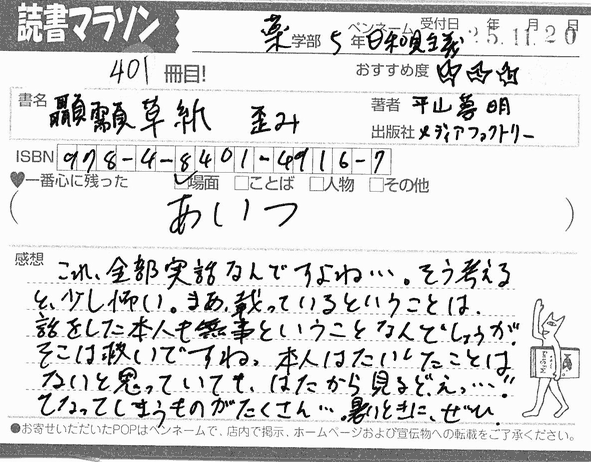 読書マラソン
薬学部 5年 ペンネーム 日和見主義 受付日 年 月 日
25.11.20
401冊目!
おすすめ度 ☆☆☆
書名 顳顬草紙 歪み
著者 平山夢明
出版社 メディアファクトリー
ISBN 978-4-8401-4916-7
♥一番心に残った ☑場面 □ことば □人物 □その他
( あいつ )
感想
これ、全部実話なんですよね…。そう考える
と、少し怖い。まあ、載っているということは、
話をした本人も無事ということなんでしょうが。
そこは救いですね。本人はたいしたことは
ないと思っていても、はたから見るとえっ…!!
となってしまうものがたくさん…。暑いときに、ぜひ。
●お寄せいただいたPOPはペンネームで、店内で掲示、ホームページおよび宣伝物への転載をご了承ください。